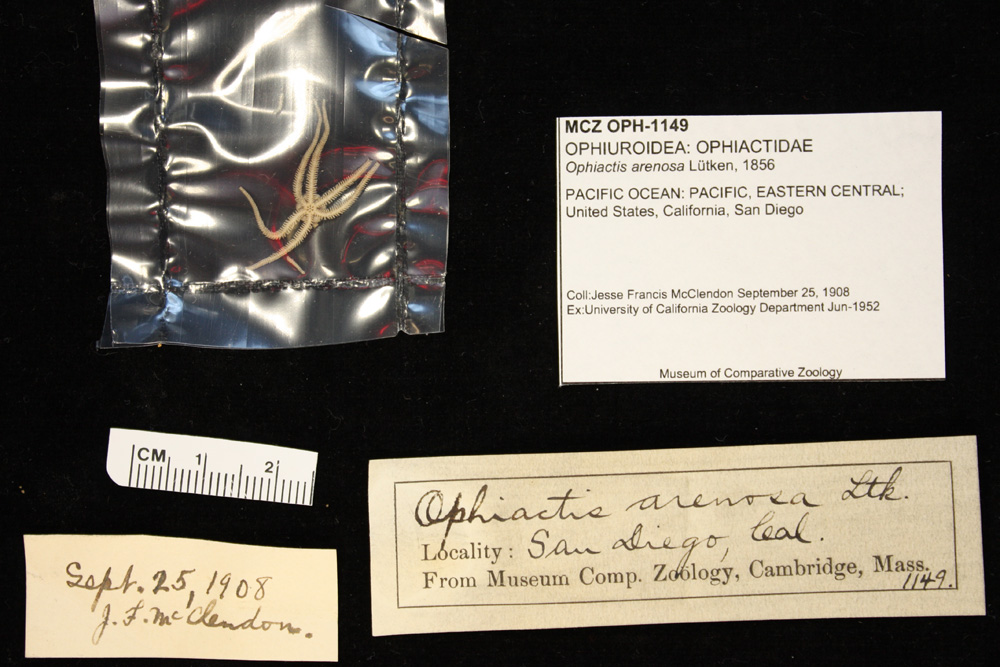 MCZ OPH-1149
OPHIUROIDEA: OPHIACTIDAE
Ophiactis arenosa Lütken, 1856
PACIFIC OCEAN: PACIFIC, EASTERN CENTRAL;
United States, California, San Diego
Coll:Jesse Francis McClendon September 25, 1908
Ex:University of California Zoology Department Jun-1952
Museum of Comparative Zoology
CM 1 2
Ophiactis arenosa Ltk.
Locality: San Diego, Cal.
From Museum Comp. Zoölogy, Cambridge, Mass.
1149.
Sept. 25, 1908
J. F. McClendon.